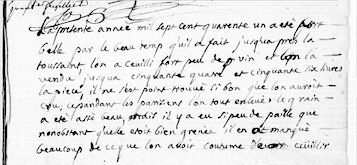 La presente année mil sept cent quarente un a eté fort
belle par le beau temp qu'il a fait jusqua pres la
toussaint lon a ceuilli fort peu de vin et lon la
vendu jusqua cinquante quatre et cinquante six livres
la piece, il ne sest point trouvé si bon que lon auroit
cru, cependant les parisiens lon tout enlevé le grain
a eté assé beau, mais il y a eu si peu de paille que
nonobstant quelle etoit bien grenée il en a manqué
beaucoup de ce que lon avoit coutume de ceuillir